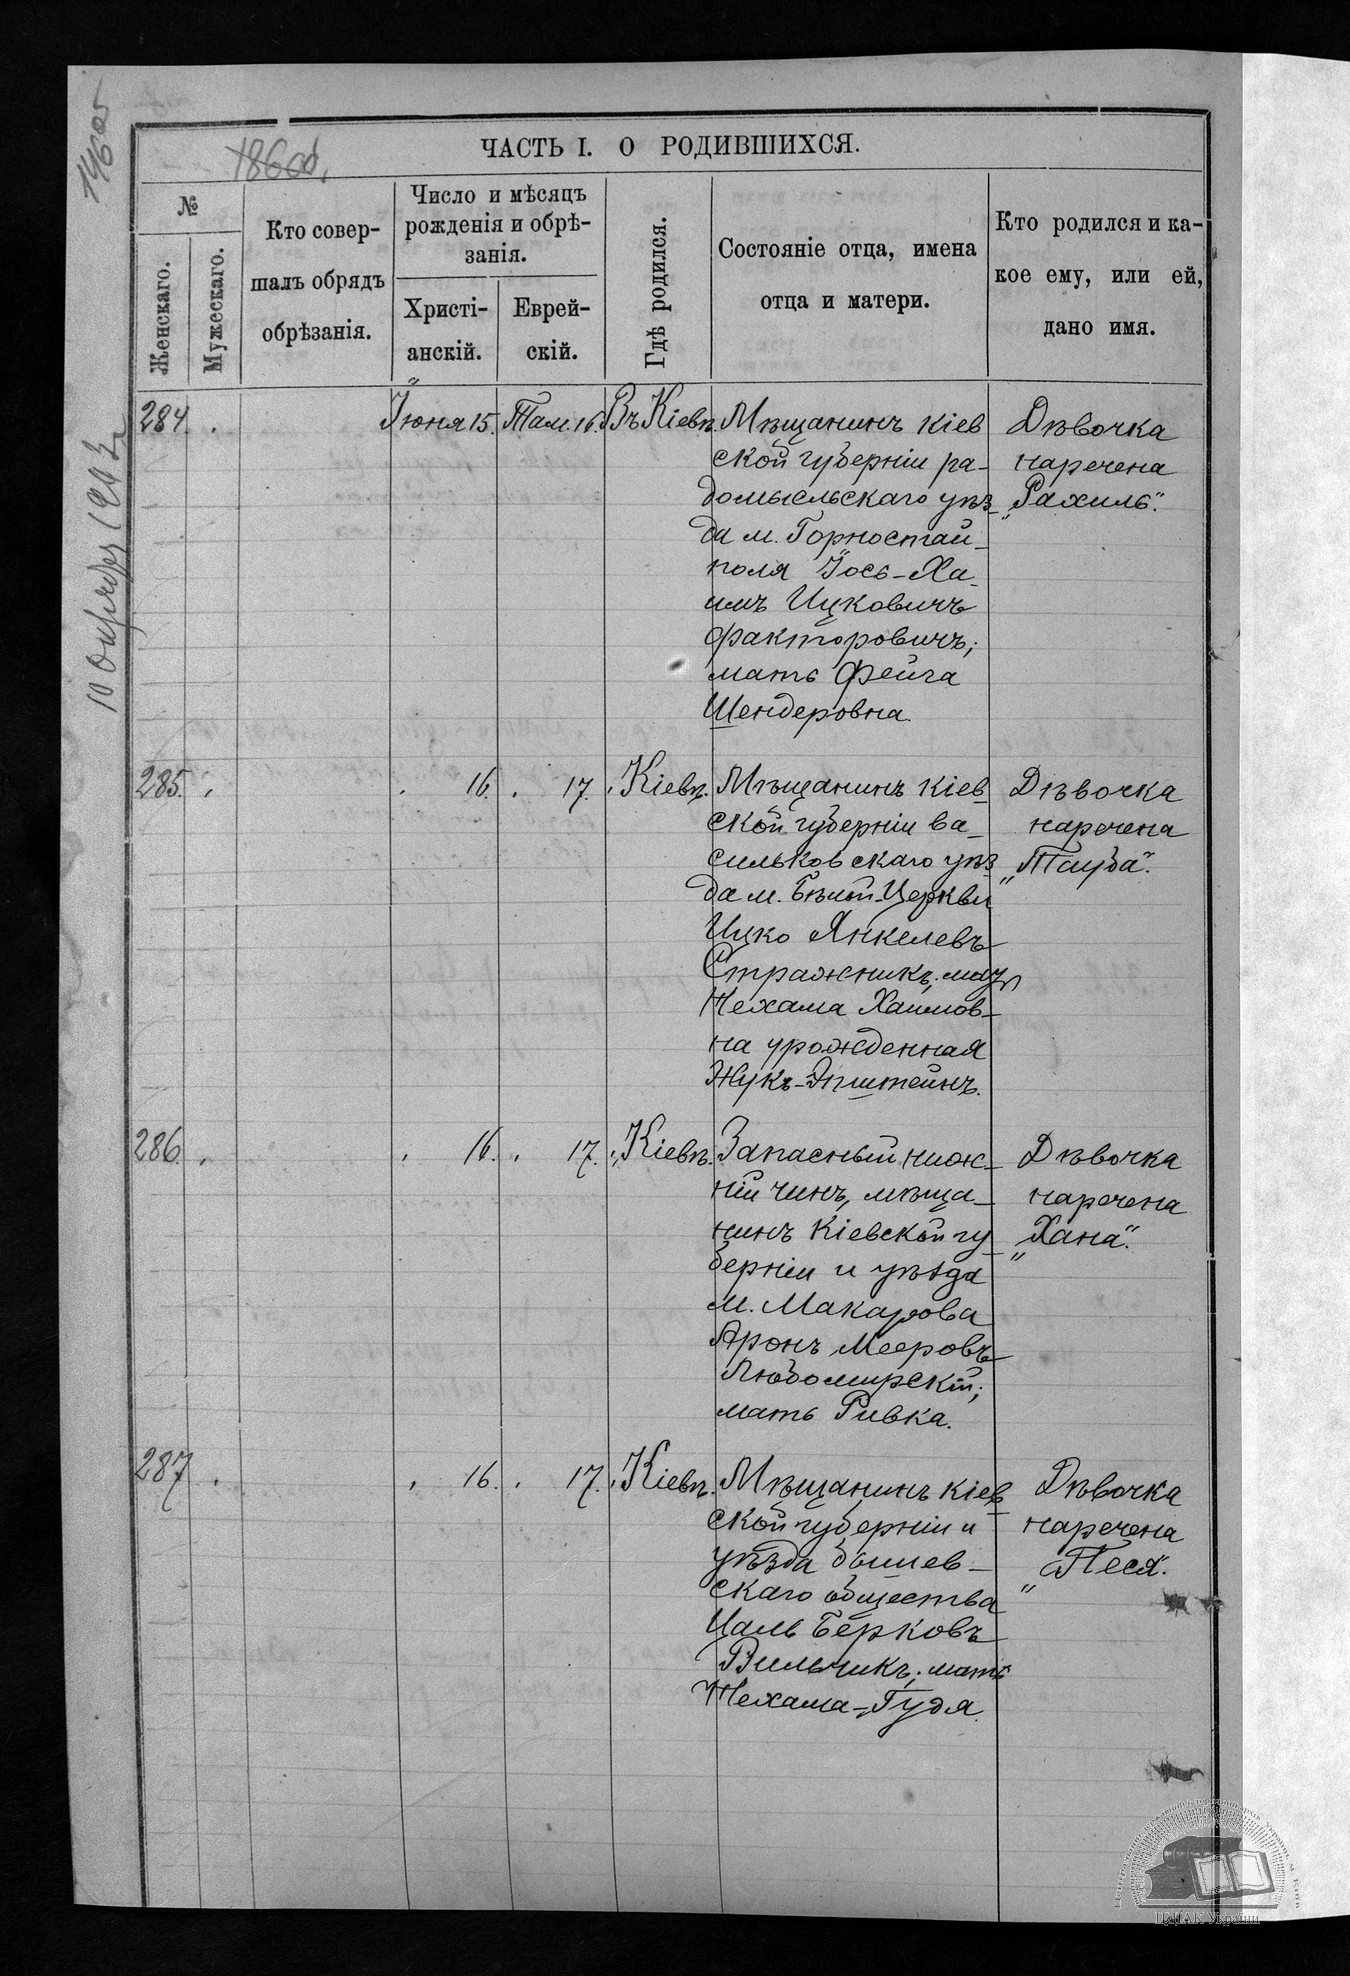 ЧАСТЬ I. О РОДИВШИХСЯ.
№
Женскаго.
Мужескаго.
Кто совер-
шалъ обрядъ
обрѣзанія.
Число и мѣсяцъ
рожденія и обрѣ-
занія.
Христі-
анскій.
Еврей-
скій.
Гдѣ родился.
Состояніе отца, имена
отца и матери.
Кто родился и ка-
кое ему, или ей,
дано имя.
284.
Іюня 15.
Там. 16.
Въ Кіевѣ.
Мѣщанинъ Кіев
ской губерніи ра-
домысльскаго уѣз-
да м. Горностай-
поля Іось-Ха-
имъ Ицковичъ
Факторовичъ;
мать Фейга
Шендеровна.
Дѣвочка
наречена
„Рахиль".
285.
16.
17.
Кіевѣ.
Мѣщанинъ Кіев-
ской губерніи ва-
сильковскаго уѣз-
да м. Бѣлой-Церкви
Ицко Янкелевъ
Стражникъ; мать
Нехама Хаимов-
на урожденная
Жукъ-Эпштейнъ.
Дѣвочка
наречена
„Тауба".
286.
16.
17.
Кіевѣ.
Запасный ниж-
ній чинъ, мѣща-
нинъ Кіевской гу-
берніи и уѣзда
м. Макарова
Аронъ Мееровъ
Любомирскій;
мать Ривка.
Дѣвочка
наречена
„Хана".
287
16.
17.
Кіевѣ.
Мѣщанинъ Кіев-
ской губерніи и
уѣзда бышев-
скаго общества
Цаль Берковъ
Вильчикъ; мать
Нехама-Гудя.
Дѣвочка
наречена
„Песя".
ЦДІАК України